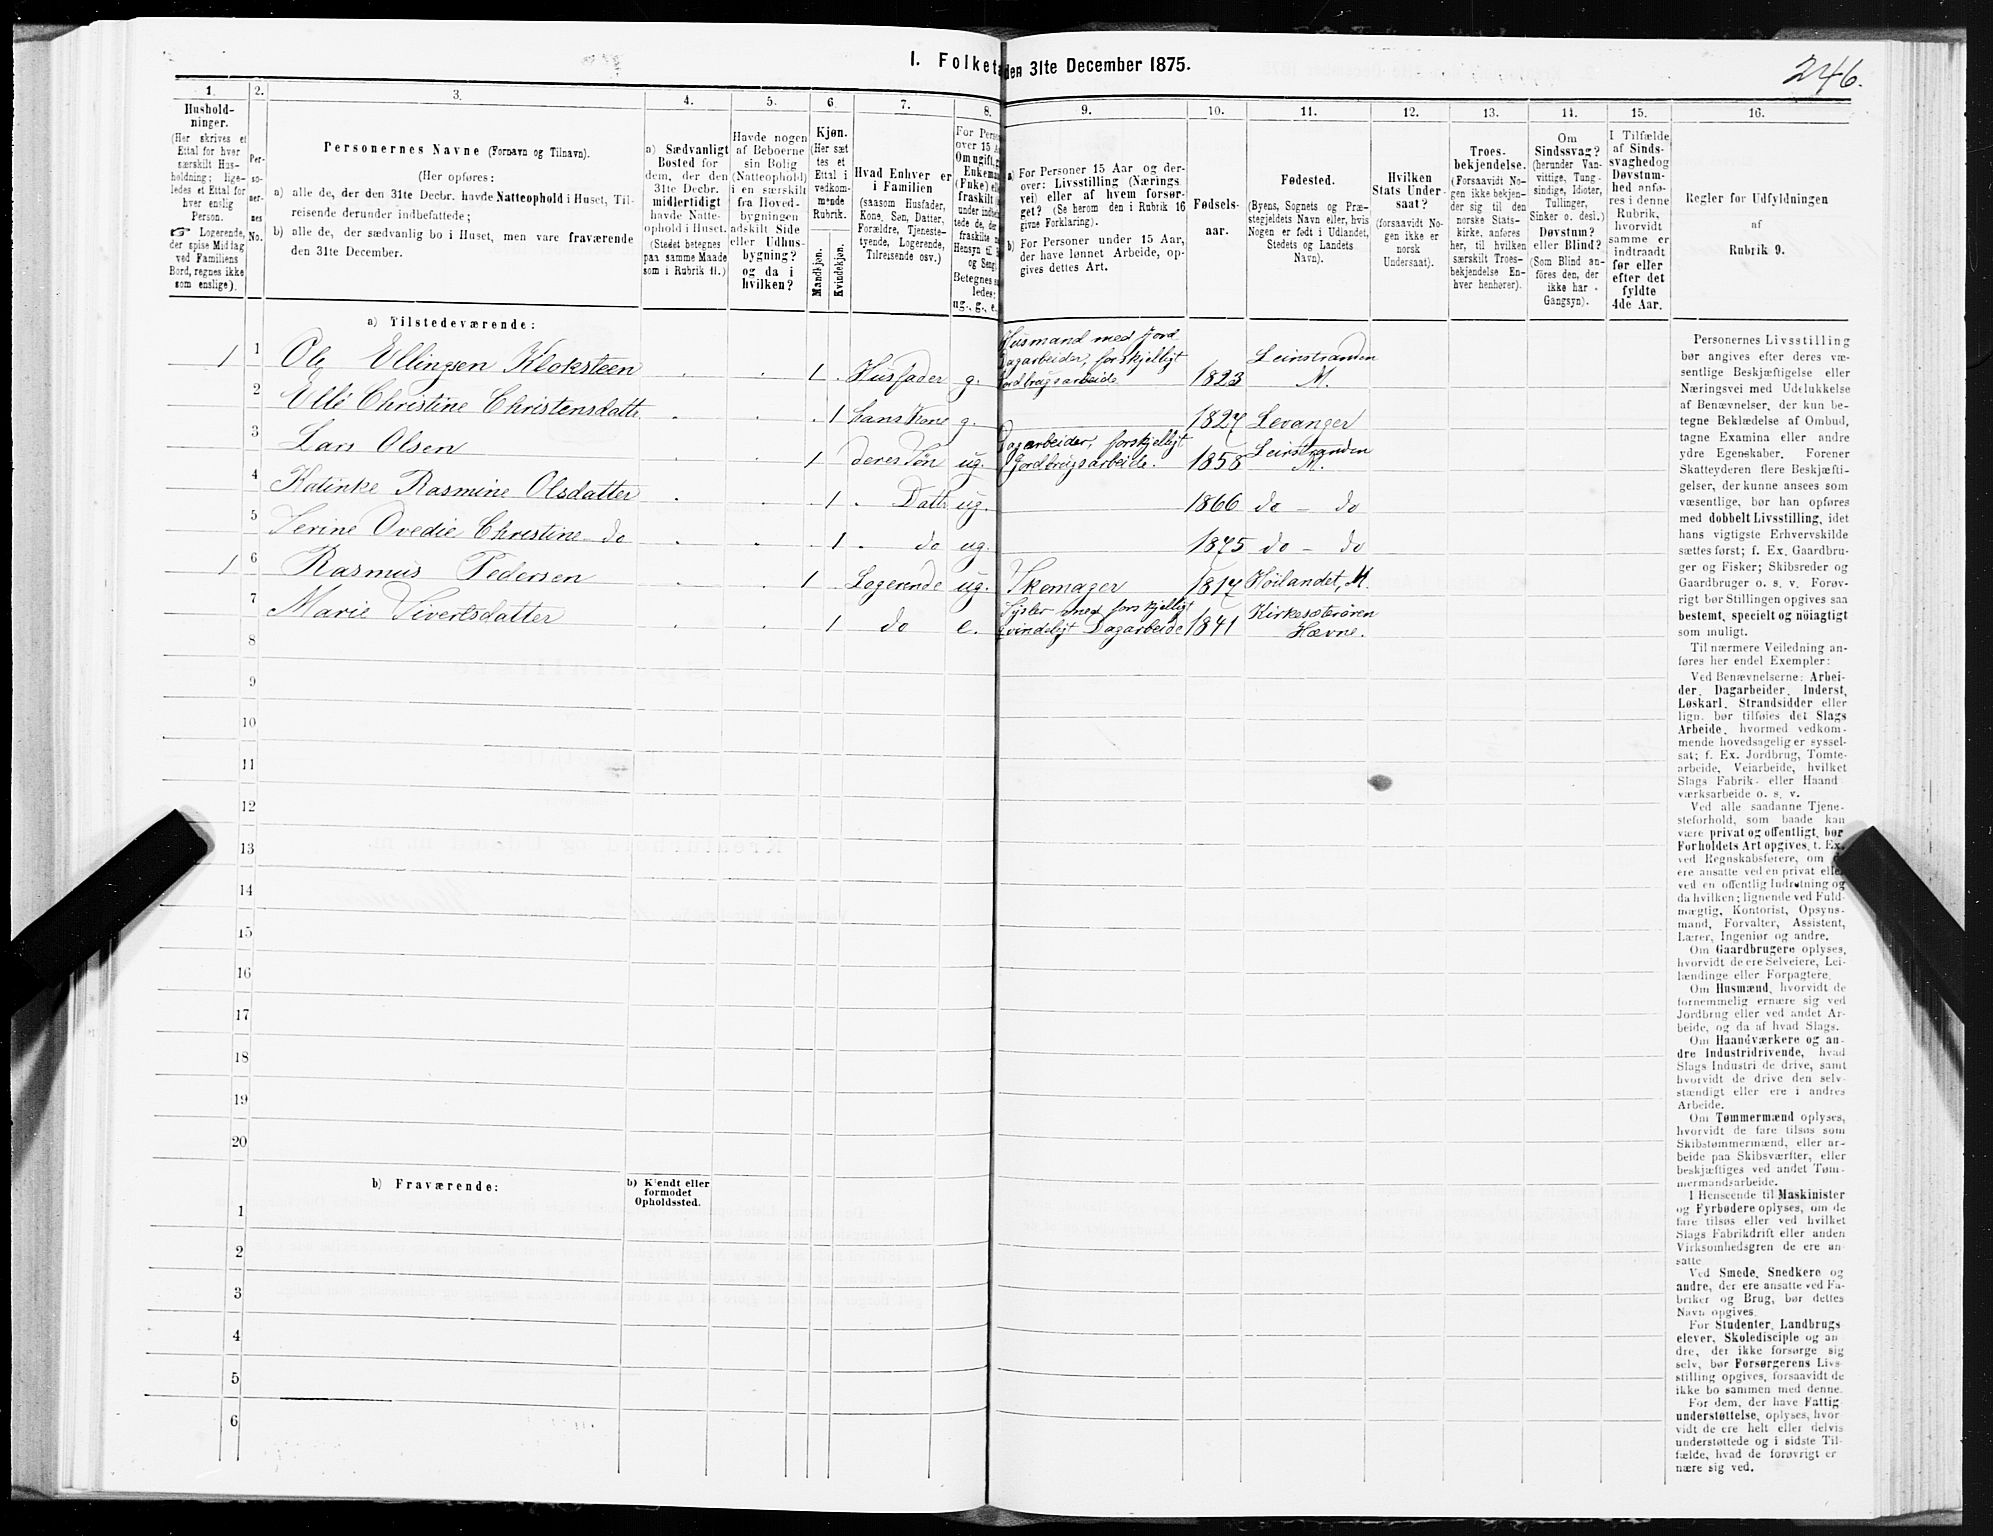 I. Folketæ den 31te December 1875.
246.
1.
Hushold-
ninger.
(Her skrives et
Ettal for hver
særskilt Hus-
holdning; lige-
ledes et Ettal for
hver enslig
Person.
☞ Logerende,
der spise Middag
ved Familiens
Bord, regnes ikke
som enslige).
2.
Per-
so-
ner-
nes
No.
3.
Personernes Navne (Fornavn og Tilnavn).
(Her opføres:
a) alle de, der den 31te Decbr. havde Natteophold i Huset, Til-
reisende derunder indbefattede;
b) alle de, der sædvanlig bo i Huset, men vare fraværende
den 31te December.
4.
a) Sædvanligt
Bosted for
dem, der den
31te Decbr.
midlertidigt
havde Natte-
ophold i Huset.
(Stedet betegnes
paa samme Maade
som i Rubrik 11.)
5.
Havde nogen
af Beboerne
sin Bolig
(Natteophold)
i en særskilt
fra Hoved-
bygningen
adskilt Side
eller Udhus-
bygning?
og da i
hvilken?
6.
Kjøn.
(Her sæt
tes et
Ettal i
vedkom-
mende
Rubrik.
Mandkjøn.
Kvindekjøn.
7.
Hvad Enhver er
i Familien
(saasom Husfader,
Kone, Søn, Datter,
Forældre, Tjeneste-
tyende, Logerende,
Tilreisende osv.)
8.
For Perso
over 15 A
Om ugift, g
Enkema
(Enke) ell
fraskilt
under indbe
tede de, der
fraskilte
Hensyn til
og Seng
Betegnes s
ledes:
ug., g., e.
9.
a) For Personer 15 Aar og der-
over: Livsstilling (Nærings
vei) eller af hvem forsør-
get? (Se herom den i Rubrik 16
givne Forklaring).
b) For Personer under 15 Aar,
der have lønnet Arbeide, op-
gives dettes Art.
10.
Fødsels-
aar.
11.
Fødested.
(Byens, Sognets og Præ-
stegjeldets Navn eller, hvis
Nogen er født i Udlandet,
Stedets og Landets
Navn).
12.
Hvilken
Stats Under-
saat?
(forsaavidt No-
gen ikke er
norsk
Undersaat).
13.
Troes-
bekjendelse.
(Forsaavidt No-
gen ikke bekjen-
der sig til den
norske Stats-
kirke, anføres
her, til hvilken
særskilt Troes-
bekjendelse En-
hver henhører).
14.
Om
Sindssvag?
(herunder Van-
vittige, Tung-
sindige, Idioter,
Tullinger,
Sinker o. desl.)
Døvstum?
eller Blind?
(Som Blind an-
føres den, der
ikke har
Gangsyn).
15.
I Tilfælde
af Sinds-
svaghed og
Døvstum-
hed anfø-
res i denne
Rubrik,
hvorvidt
samme er
indtraadt
før eller
efter det
fyldte
4de Aar.
16.
Regler for Udfyldningen
af
Rubrik 9.
a) Tilstedeværende:
1 1 Ole Ellingsen Kloksteen . . 1 . Husfader g. Husmand med Jord Dagarbeider, forskjelligt Jordbrugsarbeide 1823 Leinstranden M.
2 Elle Christine Christensdatt. . . . 1 hans Kone g. 1827 Levanger
3 Lars Olsen . . 1 deres Søn ug. Dagarbeider, forskjelligt Jordbrugsarbeide. 1858 Leinstranden M.
4 Katinke Rasmine Olsdatter . . . 1 . Datt ug. 1866 do - do
5 Serine Ovedie Christine do . . . 1 . do ug. 1875 do - do
1 6 Rasmus Pedersen . . 1 . Logerende ug. Skomager 1817 Høilandet, M.
7 Marie Sivertsdatter . . . 1 do e. Sysler med forskjelligt qvindeligt Dagarbeide 1841 Kirkesæterøren Hævne.
8
9
10
11
12
13
14
15
16
17
18
19
20
b) Fraværende:
b) Kjendt eller
formodet
Opholdssted.
1
2
3
4
5
6
Personernes Livsstilling
bør angives efter deres væ-
sentlige Beskjæftigelse eller
Næringsvei med Udelukkelse
af Benævnelser, der kun be-
tegne Beklædelse af Ombud,
tagne Examina eller andre
ydre Egenskaber. Forener
Skatteyderen flere Beskjæfti-
gelser, der kunne ansees som
væsentlige, bør han opføres
med dobbelt Livsstilling, idet
hans vigtigste Erhvervskilde
sættes først; f. Ex. Gaardbru-
ger og Fisker; Skibsreder og
Gaardbruger o. s. v. Forøv-
rigt bør Stillingen opgives saa
bestemt, specielt og nöiagtigt
som muligt.
Til nærmere Veiledning an-
føres her endel Exempler:
Ved Benævnelserne: Arbei-
der, Dagarbeider, Inderst,
Løskarl, Strandsidder eller
lign. bør tilføies det Slags
Arbeide, hvormed vedkom-
mende hovedsagelig er syssel-
sat; f. Ex. Jordbrug, Tomte-
arbeide, Veiarbeide, hvilket
Slags Fabrik- eller Haand-
værksarbeide o. s. v.
Ved alle saadanne Tjene-
steforhold, som baade kan
være privat og offentligt, bør
Forholdets Art opgives, t. Ex.
ved Regnskabsførere, om de
ere ansatte ved en privat eller
ved en offentlig Indretning og
da hvilken; lignende ved Fuld-
mægtig, Kontorist, Opsyns-
mand, Forvalter, Assistent,
Lærer, Ingeniør og andre.
Om Gaardbrugere oplyses,
hvorvidt de ere Selveiere, Lei-
lændinge eller Forpagtere.
Om Husmænd, hvorvidt de
fornemmelig ernære sig ved
Jordbrug eller ved andet Ar-
beide, og da af hvad Slags.
Om Haandværkere og an-
dre Industridrivende, hvad
Slags Industri de drive, samt
hvorvidt de drive den selv-
stændigt eller ere i andres
Arbeide.
Om Tømmermænd oplyses,
hvorvidt de fare tilsøs som
Skibstømmermænd, eller ar-
beide paa Skibsværfter, eller
beskjæftiges ved andet Tøm-
mermandsarbeide.
I Henseende til Maskinister
og Fyrbødere oplyses, om de
fare tilsøs eller ved hvilket
Slags Fabrikdrift eller anden
Virksomhedsgren de ere an-
satte
Ved Smede, Snedkere og
andre, der ere ansatte ved Fa-
briker og Brug, bør dettes
Navn opgives.
For Studenter, Landbrugs
elever, Skoledisciple og an-
dre, der ikke forsørge sig
selv, bør Forsørgerens Livs-
stilling opgives, forsaavidt de
ikke bo sammen med denne.
For dem, der have Fattig
understøttelse, oplyses, hvor
vidt de ere helt eller delvis
understøttede og i sidste Til-
fælde, hvad de forøvrigt er
nære sig ved.